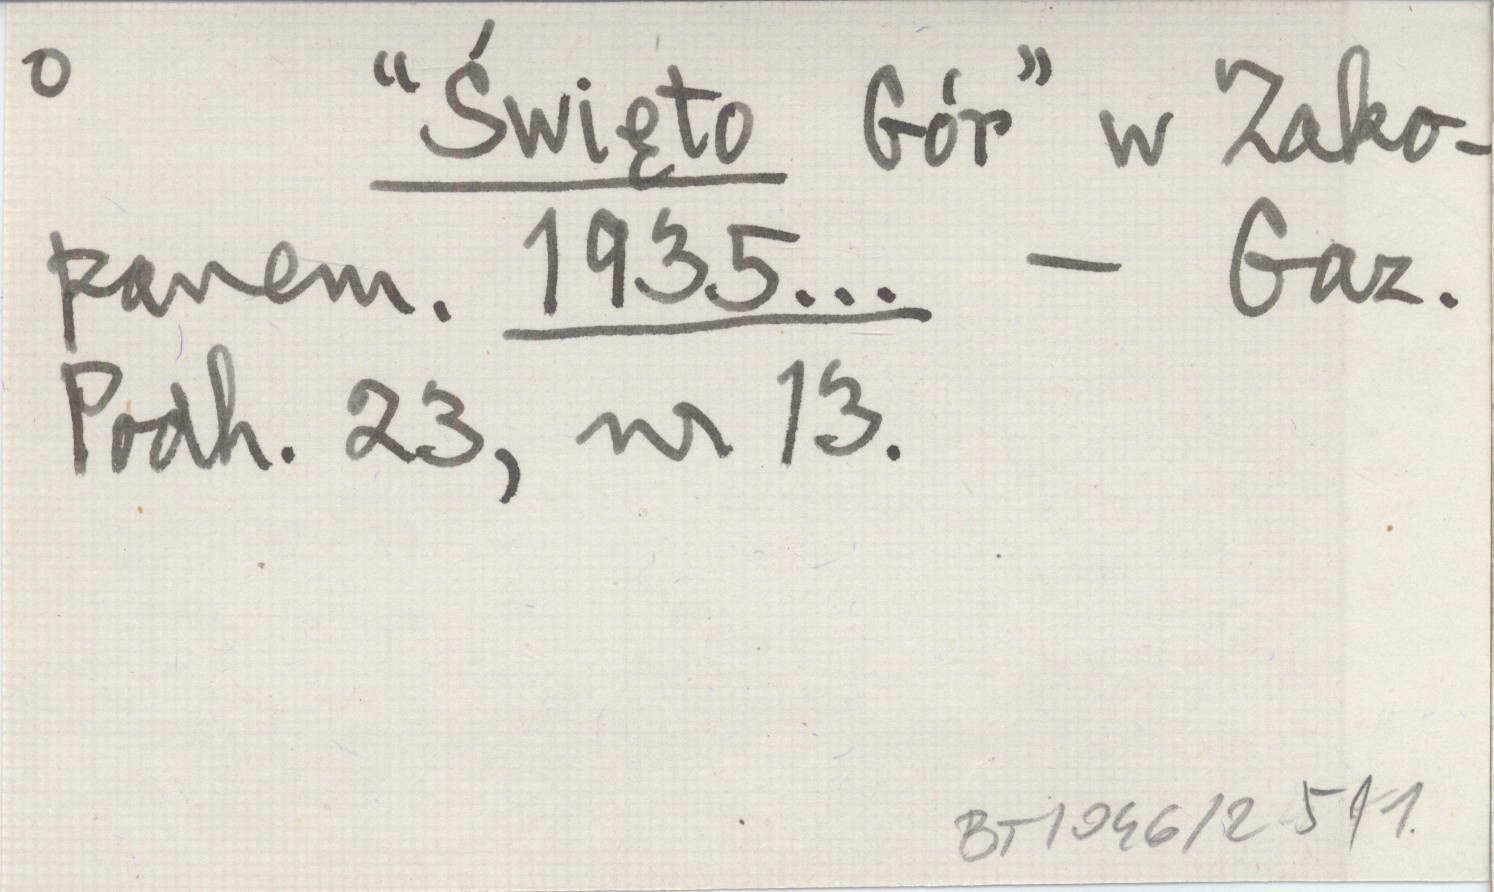 o "Święto Gór" w Zako-
panem. 1935... — Gaz.
Podh. 23, nr 13.
BT 1946/2 5/1.